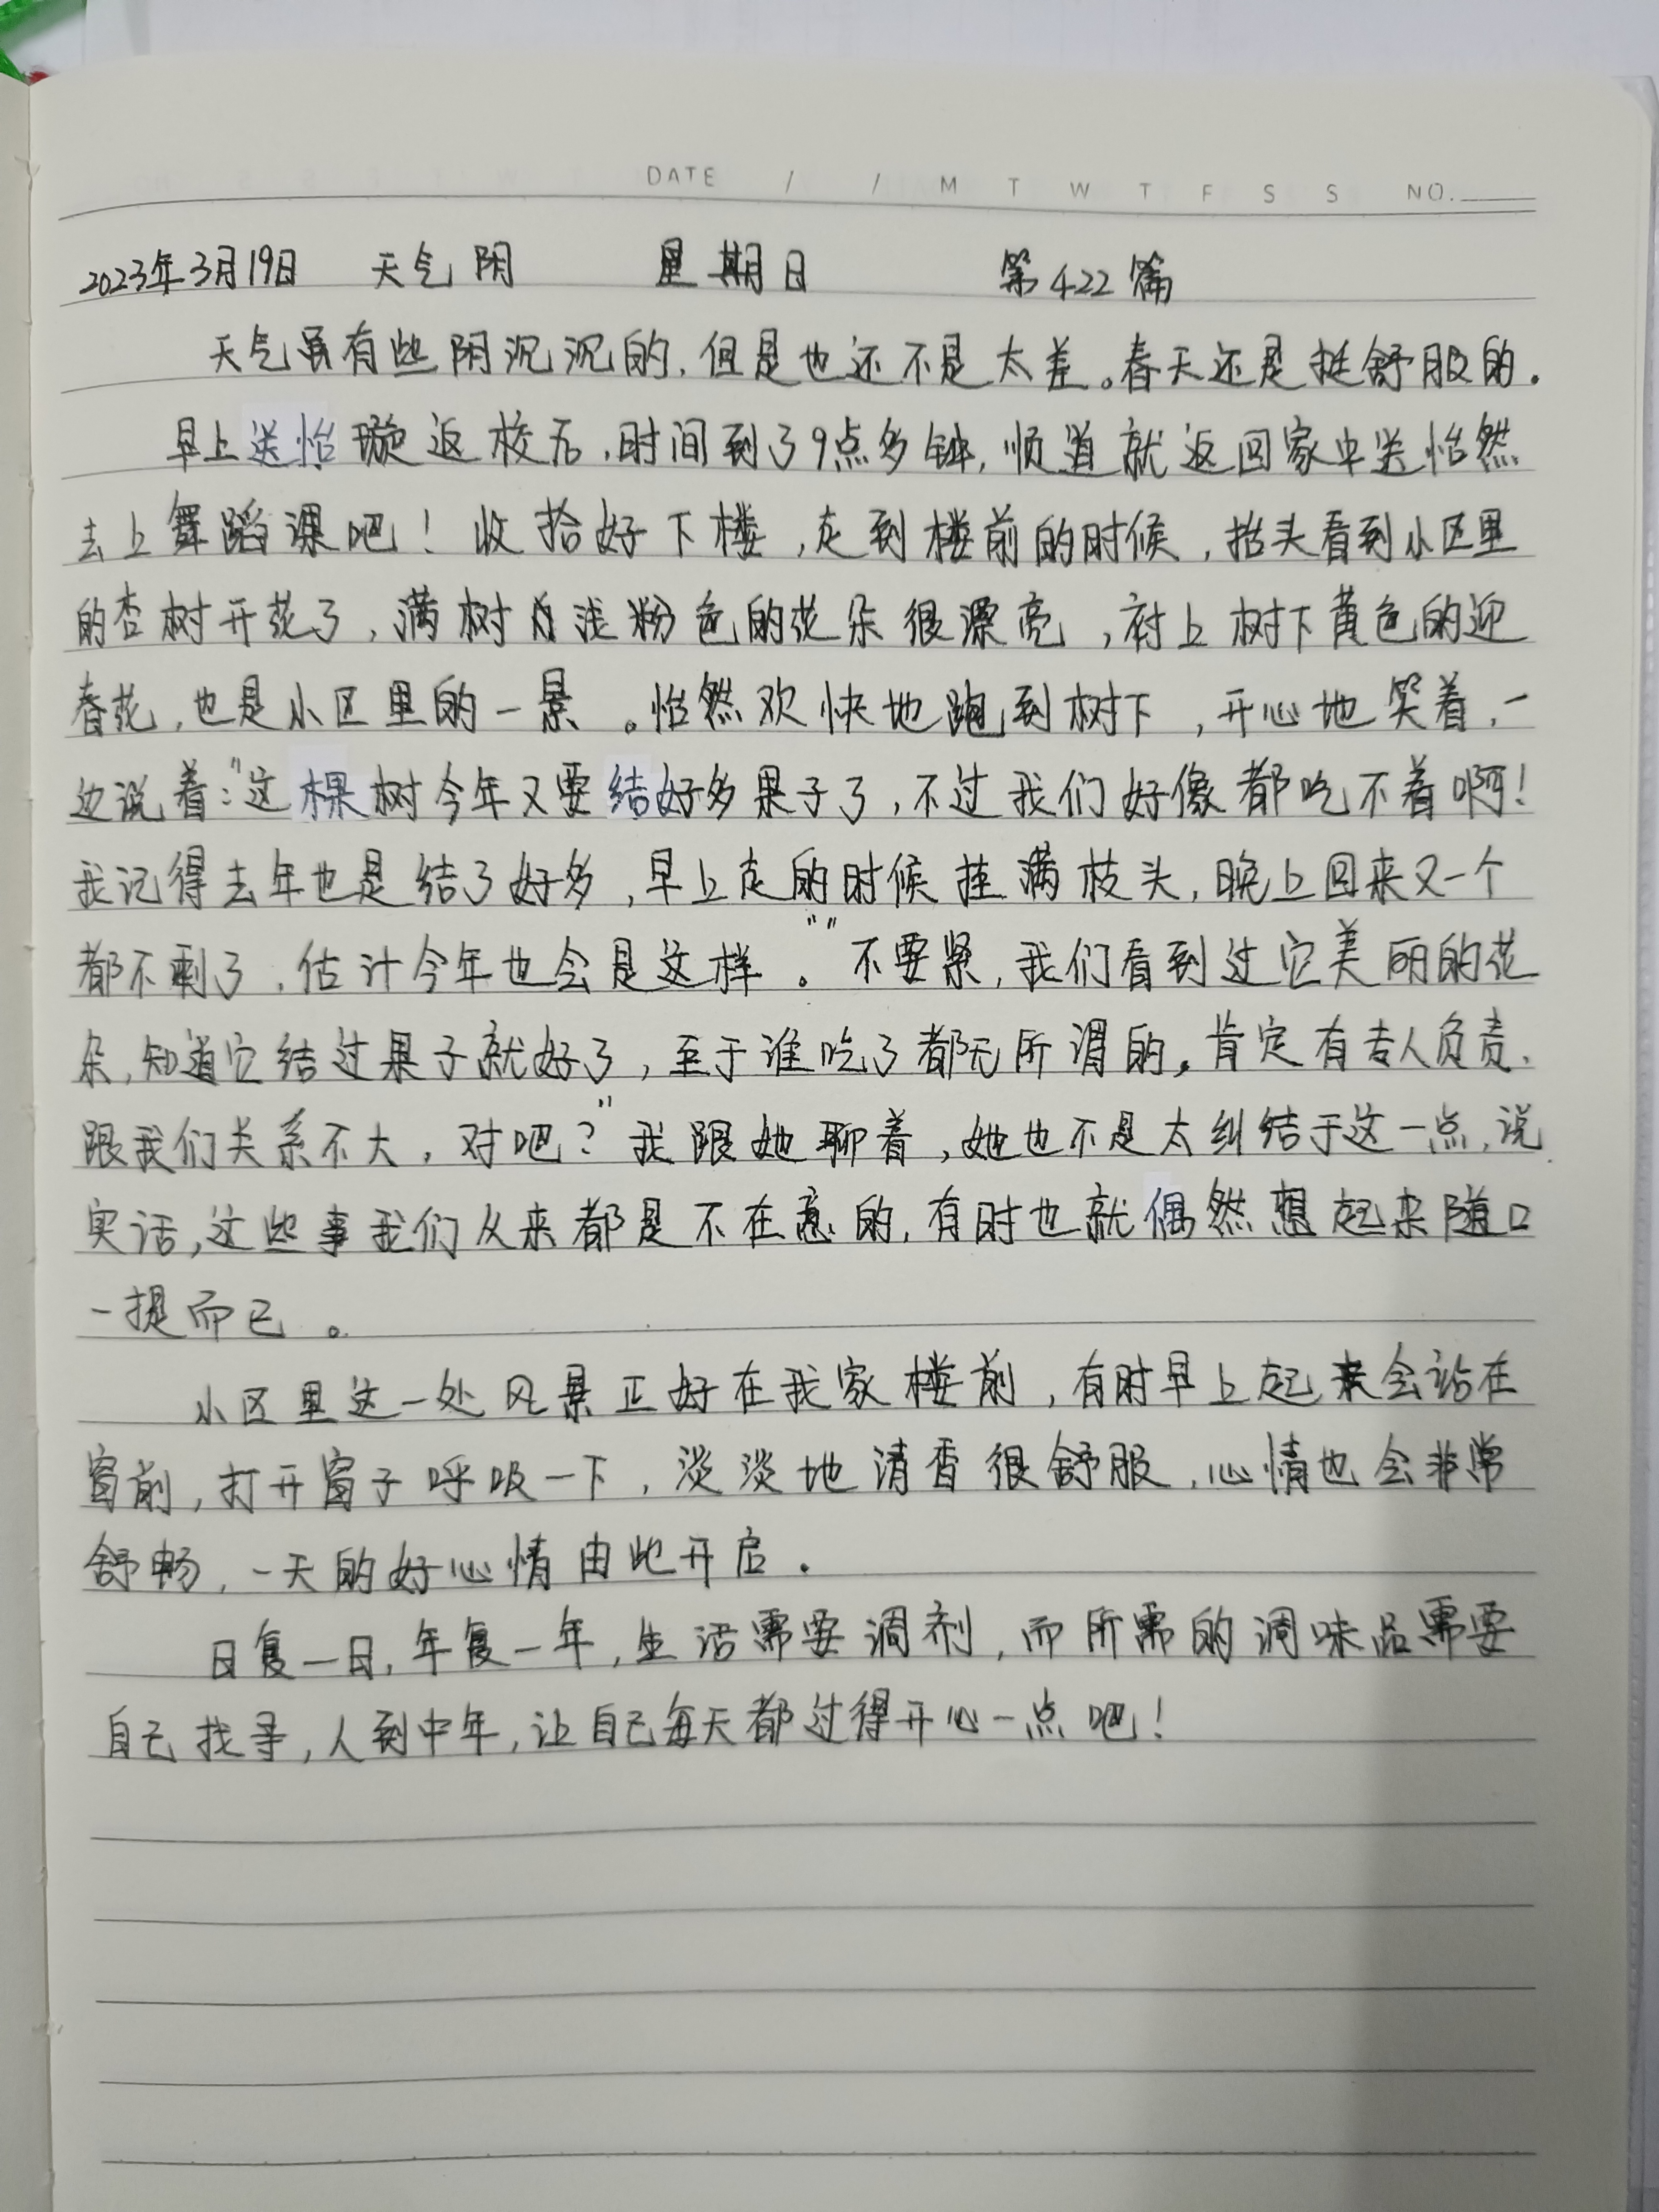 DATE / / M T W T F S S NO.
2023年3月19日 天气阴 星期日 第422篇
天气虽有些阴沉沉的,但是也还不是太差。春天还是挺舒服的。
早上送怡璇返校后,时间到了9点多钟,顺道就返回家中送怡然
去上舞蹈课吧!收拾好下楼,走到楼前的时候,抬头看到小区里
的杏树开花了,满树浅粉色的花朵很漂亮,衬上树下黄色的迎
春花,也是小区里的一景。怡然欢快地跑到树下,开心地笑着,一
边说着:“这棵树今年又要结好多果子了,不过我们好像都吃不着啊!
我记得去年也是结了好多,早上走的时候挂满枝头,晚上回来又一个
都不剩了,估计今年也会是这样。”“不要紧,我们看到过它美丽的花
朵,知道它结过果子就好了,至于谁吃了都无所谓的。肯定有专人负责、
跟我们关系不大,对吧?”我跟她聊着,她也不是太纠结于这一点,说
实话,这些事我们从来都是不在意的,有时也就偶然想起来随口
一提而已。
小区里这一处风景正好在我家楼前,有时早上起来会站在
窗前,打开窗子呼吸一下,淡淡地清香很舒服,心情也会非常
舒畅,一天的好心情由此开启。
日复一日,年复一年,生活需要调剂,而所需的调味品需要
自己找寻,人到中年,让自己每天都过得开心一点吧!